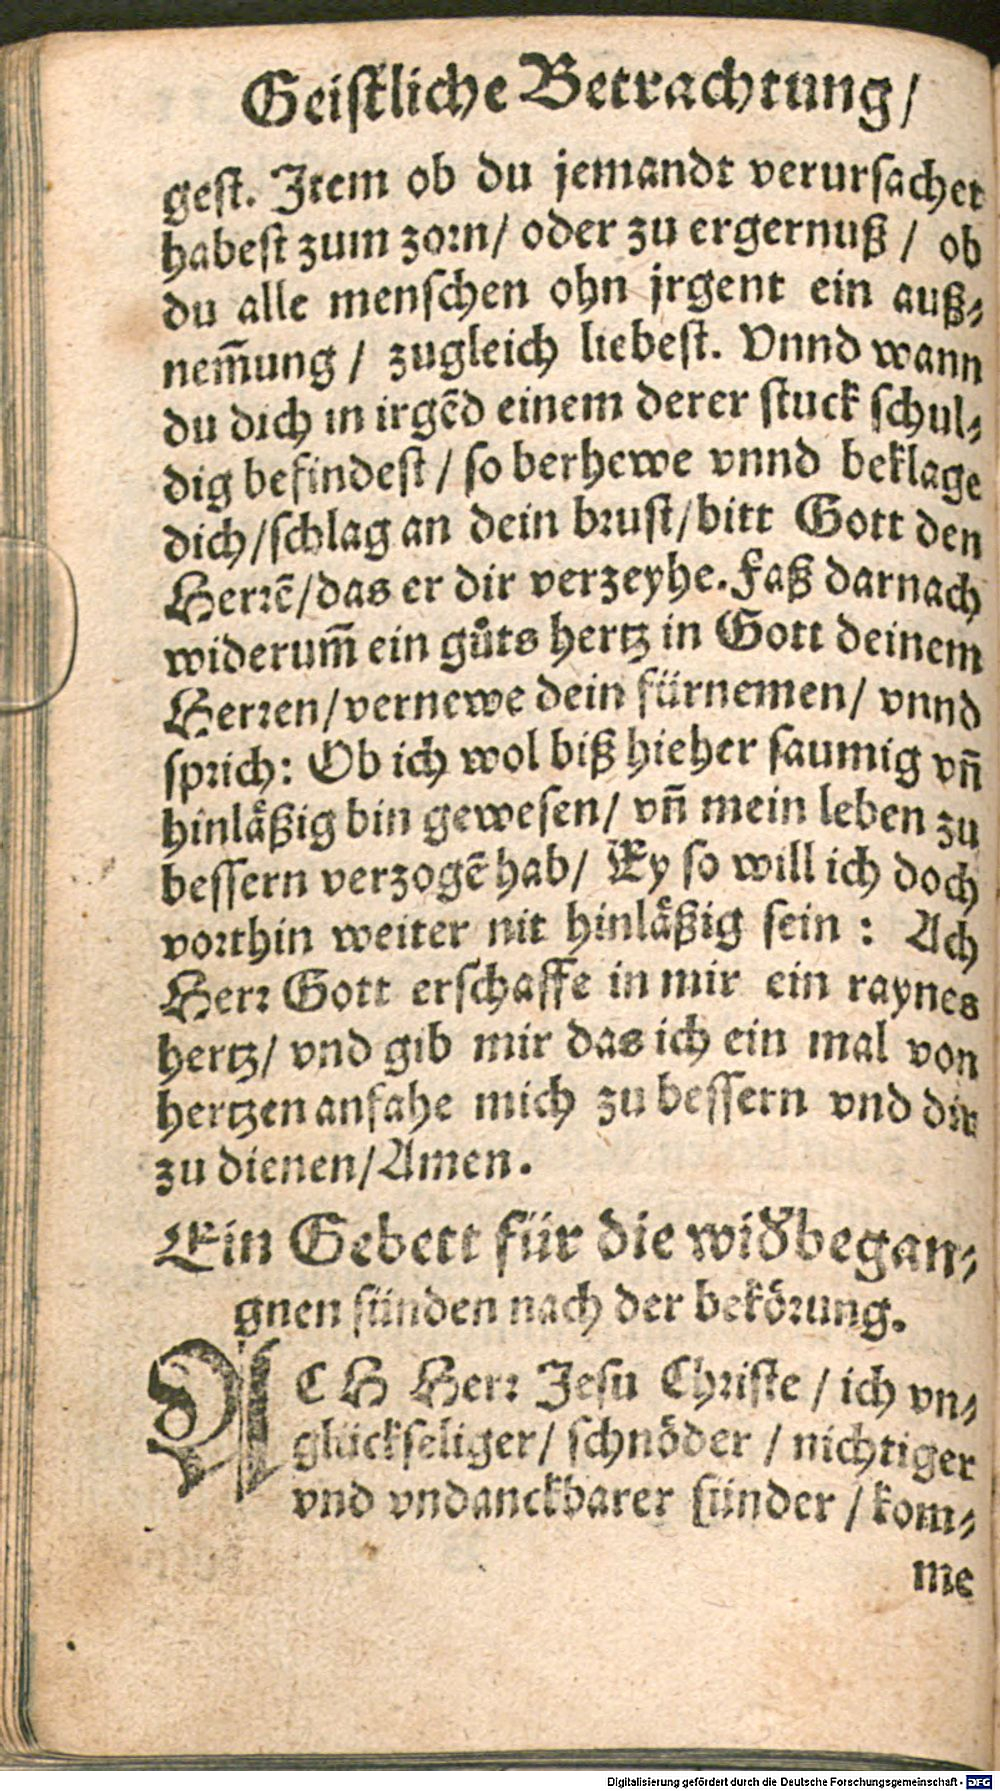 Geistliche Betrachtung/
gest. Item ob du jemandt verursachet
habest zum zorn/ oder zu ergernuß / ob
du alle menschen ohn jrgent ein auß⸗
nem̃ung / zugleich liebest. Vnnd wann
du dich in irgẽd einem derer stuck schul⸗
dig befindest / so berhewe vnnd beklage
dich/schlag an dein brust/bitt Gott den
Herrẽ/das er dir verzeyhe. Faß darnach
widerum̃ ein gůts hertz in Gott deinem
Herren/vernewe dein fürnemen/ vnnd
sprich: Ob ich wol biß hieher saumig vñ
hinläßig bin gewesen/ vñ mein leben zu
bessern verzogẽ hab/ Ey so will ich doch
vorthin weiter nit hinläßig sein : Ach
Herr Gott erschaffe in mir ein raynes
hertz/ vnd gib mir das ich ein mal von
hertzen anfahe mich zu bessern vnd dir
zu dienen/Amen.
Ein Gebett für die wid̃began⸗
gnen sünden nach der bekörung.
ACH Herr Jesu Christe / ich vn⸗
glückseliger/ schnöder / nichtiger
vnd vndanckbarer sünder / kom⸗
me
Digitalisierung gefördert durch die Deutsche Forschungsgemeinschaft - DFG